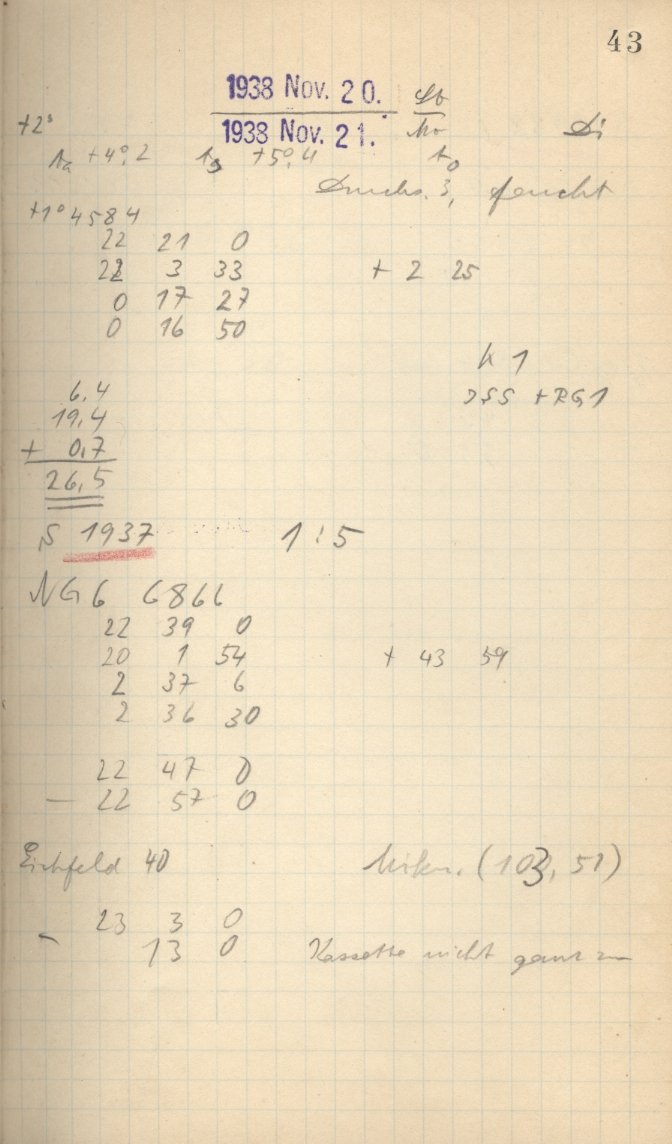 43
1938 Nov. 20.
+2°
1938 Nov. 21. Mo Di
ta +4°,2 +5°,4
3, feucht
+1° 4584
22 21 0
22 3 33 + 2 25
0 17 27
0 16 50
K 1
6,4
ISS + RG 1
19,4
+ 0,7
26,5
S 1937 1 : 5
NG 6 6866
22 39 0
20 1 54 + 43 59
2 37 6
2 36 30
22 47 0
— 22 57 0
Eichfeld 40 (103, 51)
23 3 0
- 13 0 Kassette nicht ganz zu